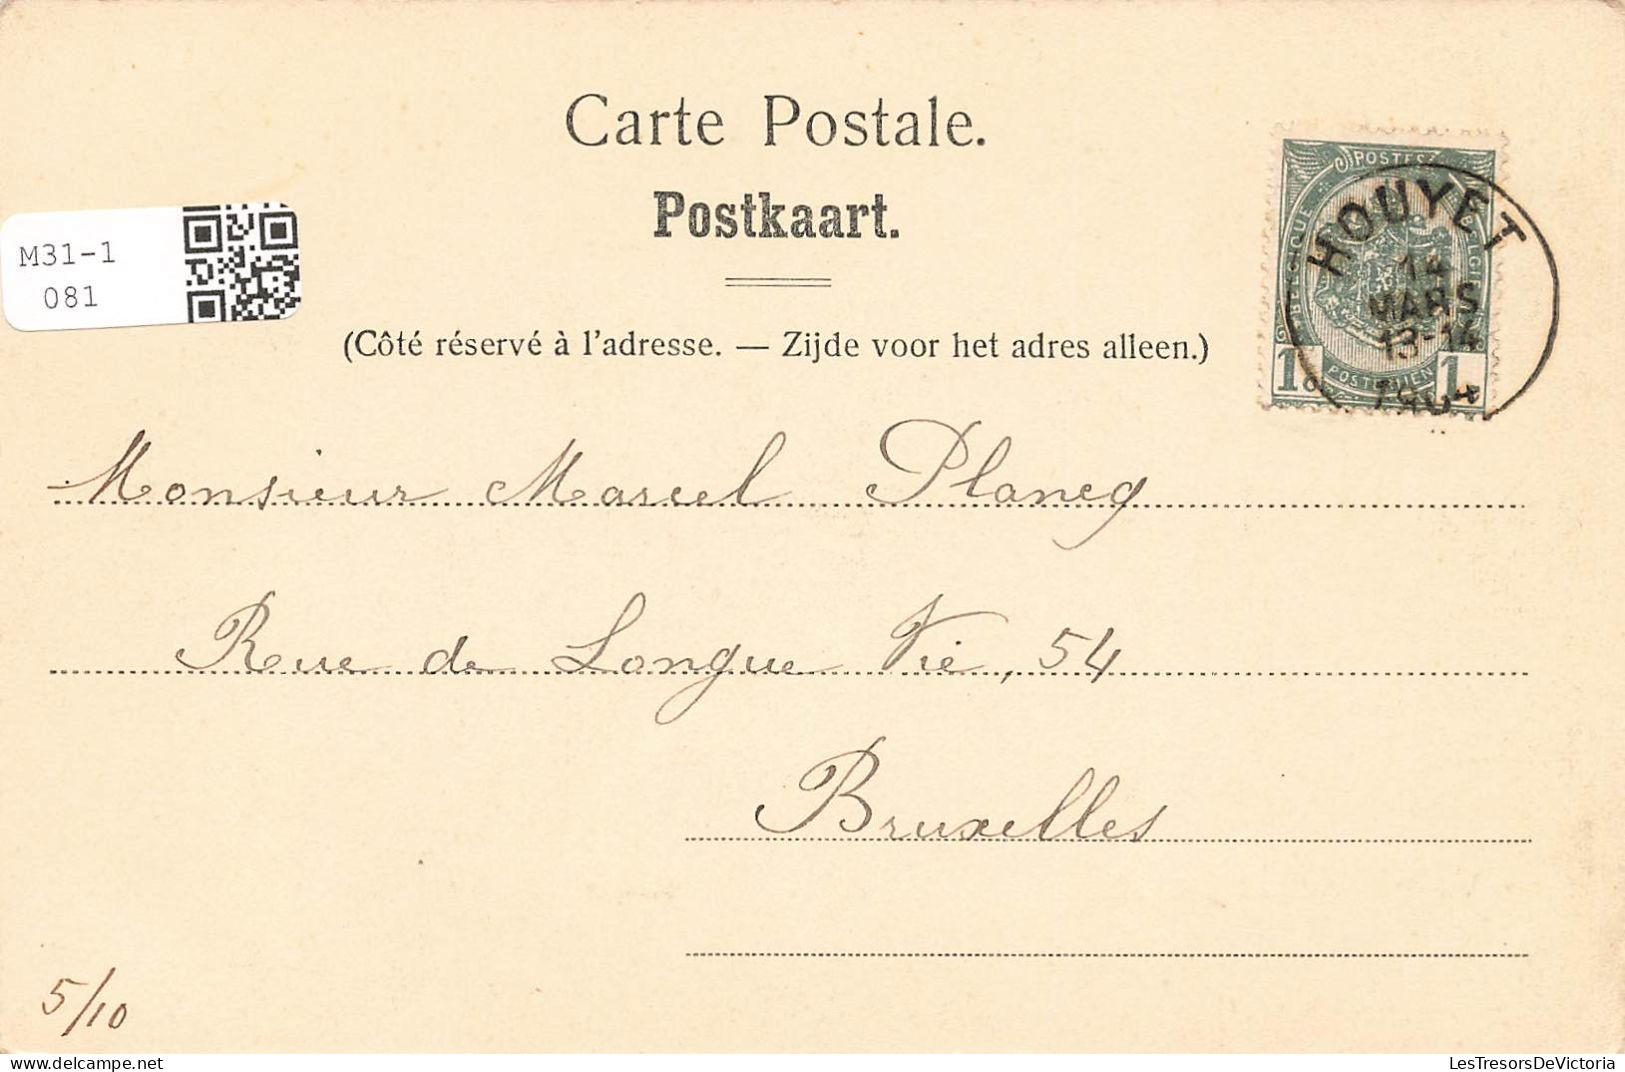 Carte Postale.
Postkaart.
M31-1
081
(Côté réservé à l'adresse. — Zijde voor het adres alleen.)
POSTES
BELGIQUE
BELGIË
1 1
HOUYET
14
MARS
13-14
1904
Monsieur Marcel Plancq
Rue de Longue Vie, 54
Bruxelles
5/10
LesTresorsDeVictoria